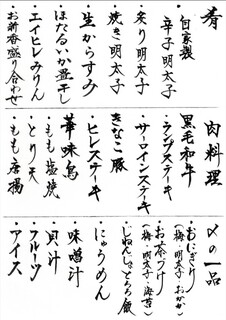 肴
自家製
辛子明太子
・炙り明太子
・焼き明太子
・生からすみ
・ほたるいか畳干し
・エイヒレみりん
・お新香盛り合わせ
肉料理
黒毛和牛
・ランプステーキ
・サーロインステーキ
きなこ豚
・ヒレステーキ
華味鳥
・もも塩焼
・とり天
・もも唐揚
〆の一品
・おにぎり
(梅・明太子・おかか)
・お茶づけ
(梅・明太子・海苔)
・じねんじょとろろ飯
・にゅうめん
・味噌汁
・貝汁
・フルーツ
・アイス